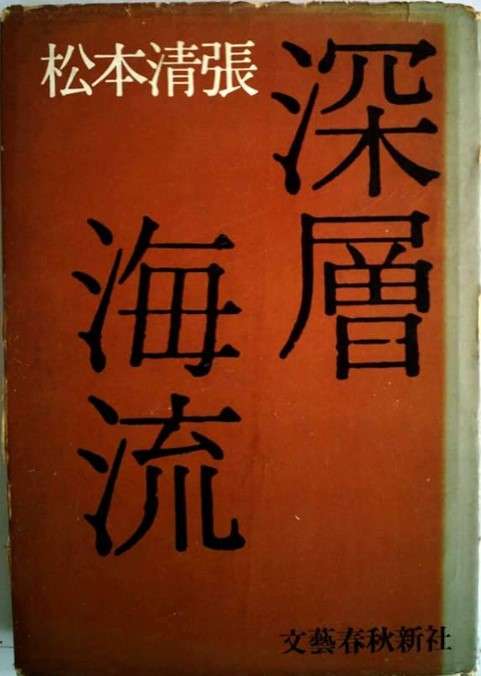 松本清張
深層
海流
文藝春秋新社